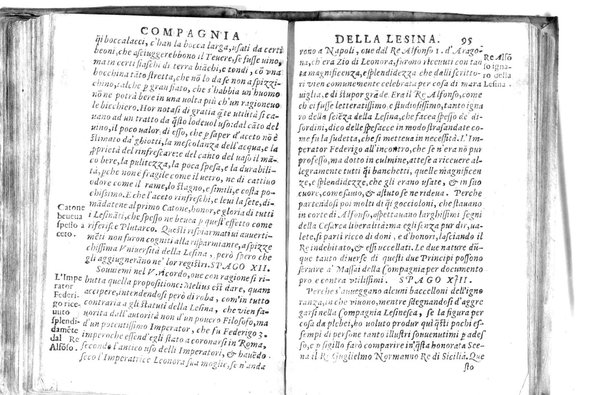 COMPAGNIA
qi boccalacci, c'han la bocca larga, usati da certi
beoni, che asciugerebbono il Teuere, se fusse uino,
ma in certi fiaschi di terra biãchi, e tondi, cõ una
bocchina tãto stretta, che nõ lo dà se non a spizzi-
chino, tal, che p gran fiato, che s'habbia un'huomo
ne potrà bere in una uolta più ch'un ragioneuo
le bicchiero. Hor notasi di gratia qte utilità si ca-
uano ad un tratto da qsto lodeuol uso: dal cãto del
uino, il poco ualor di esso, che p saper d'aceto nõ è
stimato da' ghiotti, la mescolanza dell'acqua, e la
pprietà del rinfrescare del canto del uaso il mã-
co bere, la pulitezza, la poca spesa, e la durabili-
tà, pche non fragile come il uetro, ne di cattiuo
odore come il rame, lo stagno, e simili, e costa po-
chissimo. E che l'aceto rinfreschi, e leui la sete, di-
mãdatene al primo Catone, honor, e gloria di tutti
i Lesinãti, che spesso ne beuea p quest' effetto come
riferisce Plutarco. Questi risparmati auuerti-
mẽti non furon cogniti alla risparmiante, a spizze
chissima Vniuersità della Lesina, però che
gli aggiugnerãno ne' lor registri. SPAGO XII.
Catone
beueua
spesso a
ceto.
Souuemi nel V. Acordo, con que ragioni si
ributta quella propositione: Melius est dare, quam
accepere, intendendosi però di roba, com'in tutto
contraria a gli statuti della Lesina, che benche
uien dall'autorità non d'un pouero Filosofo, ma
d'un potentissimo Imperator, che fu Federigo 3.
imperoche essend'egli stato a coronarsi in Roma,
secondo l'antico uso delli Imperatori, & hauẽdo
seco l'Imperatrice Leonora sua moglie, se n'anda
L'Impe
rator
Federi-
go rice-
uuto
splendi-
damẽte
dal Re
Alfõso.
DELLA LESINA. 95
rono a Napoli, oue dal Re Alfonso I. d'Arago-
na, ch'era Zio di Leonora, furono riceuuti con tan
ta magnificenza, e splendidezza che dalli scritto-
ri uien comunemente celebrata per cosa di mara
uiglia, e di stupor grãde. Era il Re Alfonso, come
ch'ei fusse letteratissimo, e studiosissimo, tanto igna
ro della sciẽza della Lesina, che facea spesso de' di-
sordini, dico delle spesacce in modo strasandate co-
me fu la sudetta, che si mentò in prouerbio. L'im-
perator Federigo all'incontro, che se n'era nõ pur
professo, ma dotto in culmine, attese a riceuere al-
legramente tutti qi banchetti, quelle magnificen-
ze, e splendidezze, che gli erano usate, & in suo
cuore, come sauio, & astuto se ne ridea. Perche
partendosi poi molti di qi goccioloni, che stauan
in corte di Alfonso, aspettauano larghissimi segni
della Cesarea liberalità: ma egli senza pur dir, ua-
lete, si partì ricco di doni, e d'honori, lasciando il
Re indebitato, e essi uccellati. Le due nature dũ-
que tanto diuerse di questi due Principi possono
seruire a' Massari della Compagnia per documento
pro e contra utilissimi. SPAGO XIII.
Re Alfõ
so igna-
ro della
Lesina.
Perche s'auueggano alcuni baccelloni dell'igno
ranza, in che uiuono, mentre sdegnando di aggre-
garsi nella compagnia Lesinesca, se la figura per
cosa da plebei, ho uoluto produr qui qsti pochi es-
sempi di persone tanto illustri souuenutimi p ades-
so, e p sigillo farò comparire in questa honorata Sce-
na il Re Guglielmo Normanno Re di Sicilia. Que
sto